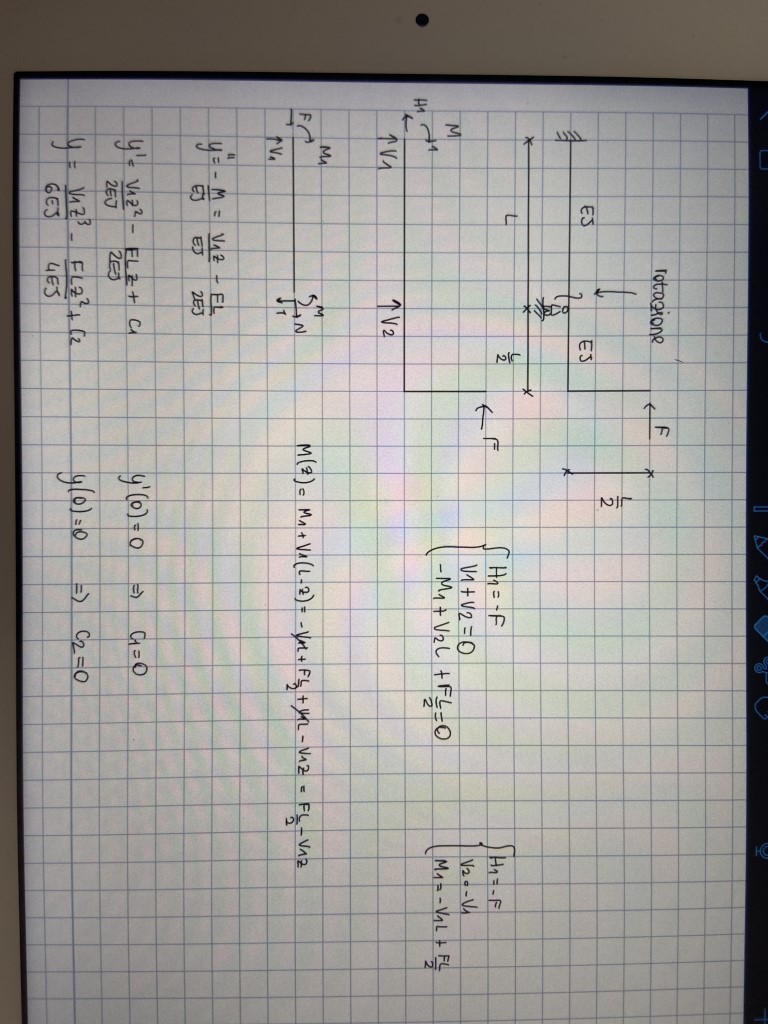 rotazione
F
EJ
EJ
L/2
L
L/2
M1
H1
V1
V2
F
{ H1=-F
V1+V2=0
-M1+V2L+FL/2=0
{ H1=-F
V2=-V1
M1=-V1L+FL/2
M1
F
V1
M
N
T
M(z)=M1+V1(L-z)=-V1L+FL/2+V1L-V1z=FL/2-V1z
y''=-M/EJ=V1z/EJ-FL/2EJ
y'=V1z²/2EJ-FLz/2EJ+C1
y'(0)=0 => C1=0
y=V1z³/6EJ-FLz²/4EJ+C2
y(0)=0 => C2=0